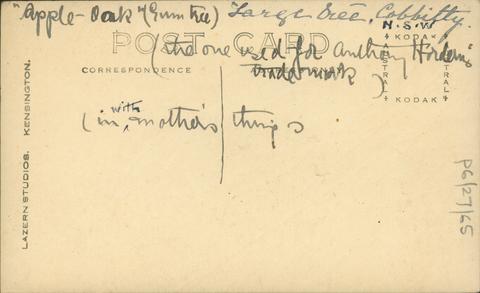 "Apple-Oak" (Gum tree) Large tree, Cobbitty.
N·S·W
POST CARD
(the one used for Anthony Horderns
trademark)
CORRESPONDENCE
KODAK
AUSTRAL
AUSTRAL
KODAK
(in with mother's things
LAZERN STUDIOS. KENSINGTON.
P6/27/65